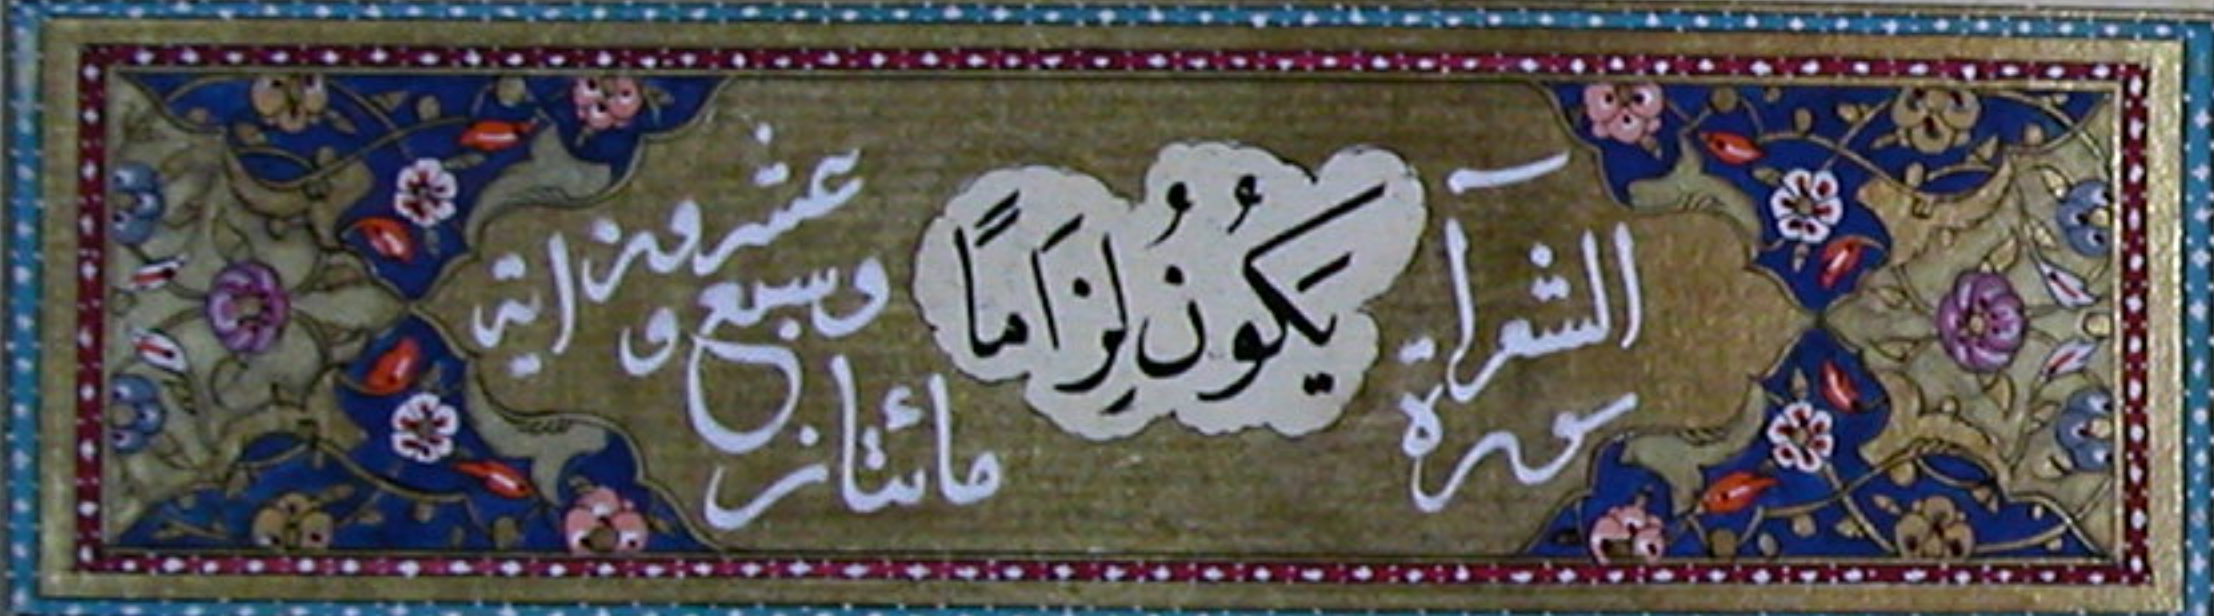 سورة الشعرآ
يَكُونُ لِزَامًا
مائتان وسبع و عشرون اية